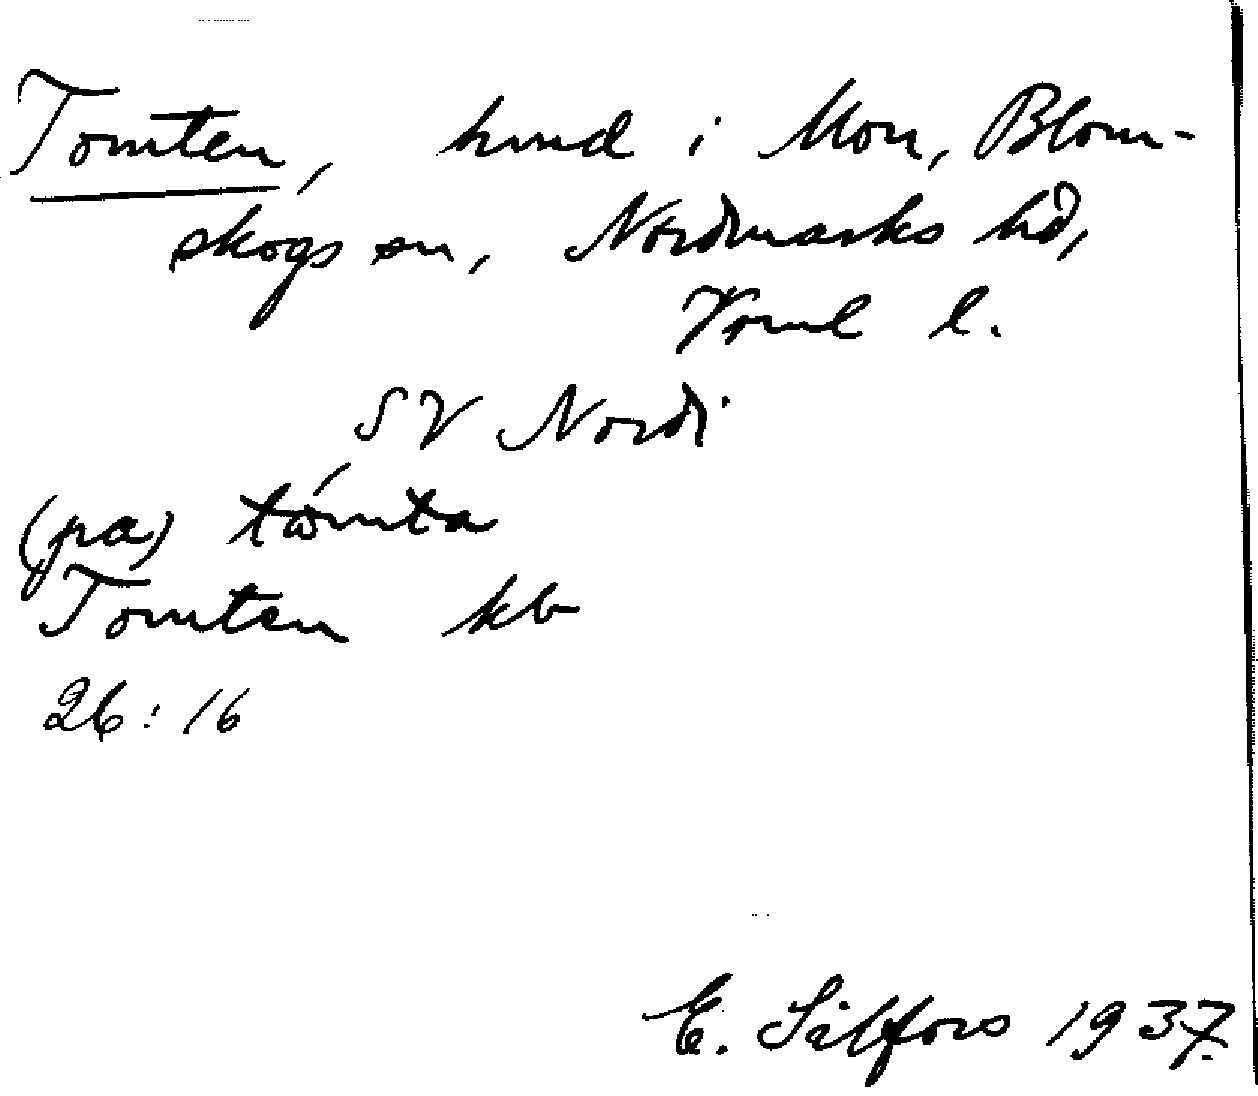 Tomten, hmd i Mon, Blom-
skogs sn, Nordmarks hd,
Vrml l.
SV Nordi
(pa) tómta
Tomten kb
26:16
E. Silfors 1937.